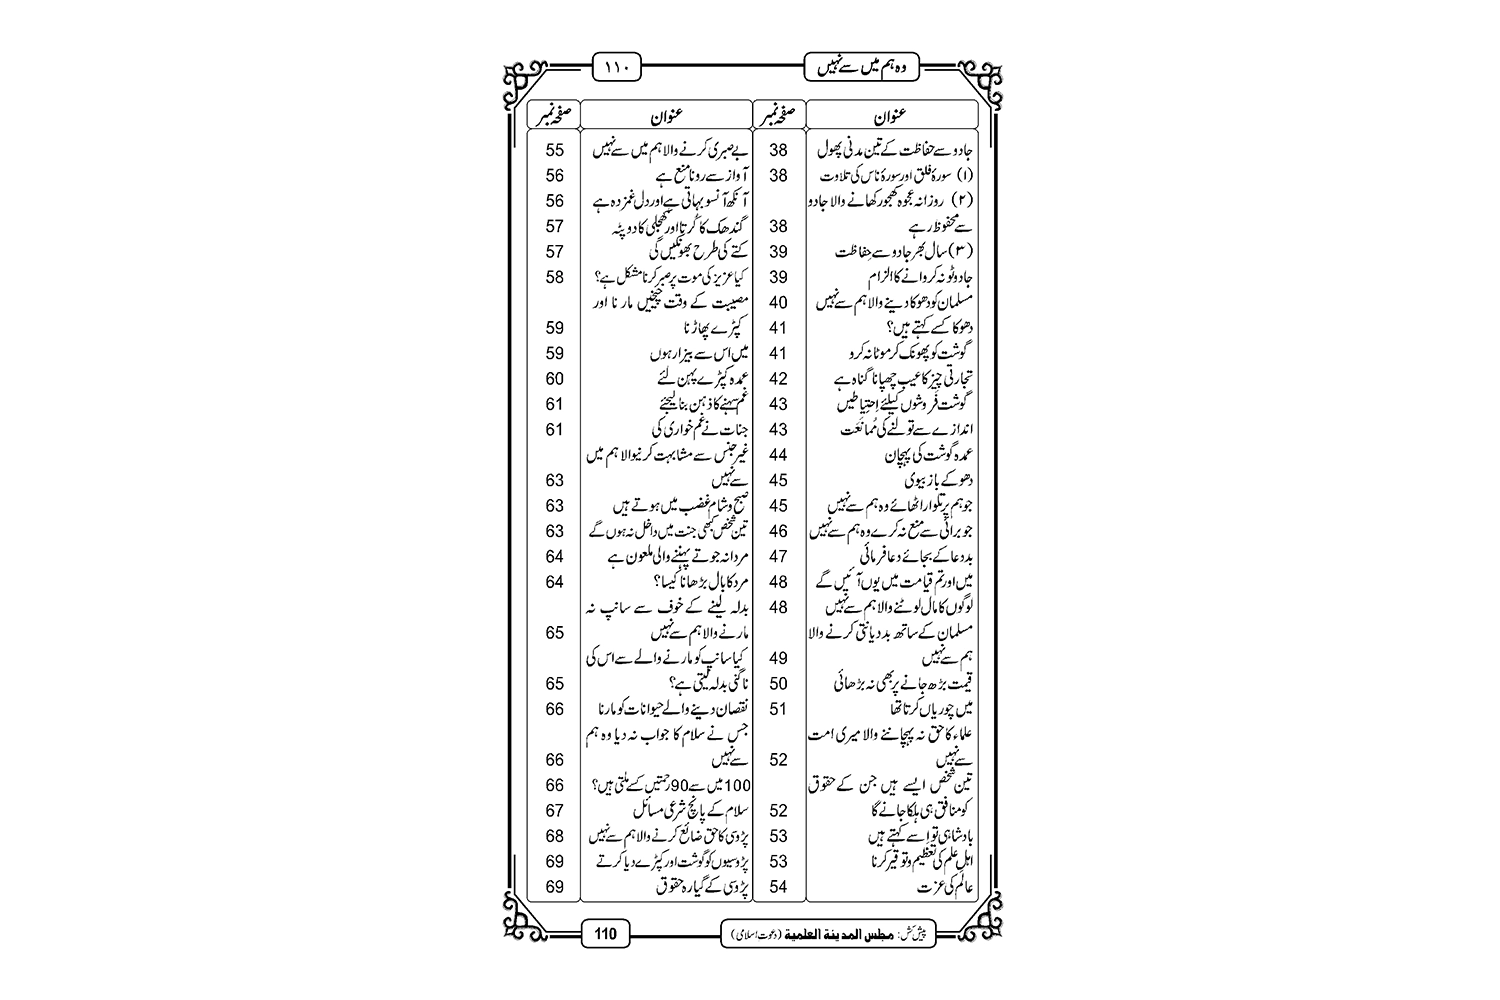 وہ ہم میں سے نہیں ۱۱۰
عنوان صفحہ نمبر
جادو سے حفاظت کے تین مدنی پھول 38
(۱) سورۂ فلق اور سورۂ ناس کی تلاوت 38
(۲) روزانہ عجوہ کھجور کھانے والا جادو
سے محفوظ رہے 38
(۳) سال بھر جادو سے حِفاظت 39
جادو ٹونہ کروانے کا الزام 39
مسلمان کو دھوکا دینے والا ہم سے نہیں 40
دھوکا کسے کہتے ہیں؟ 41
گوشت کو پھونک کر موٹا نہ کرو 41
تجارتی چیز کا عیب چھپانا گناہ ہے 42
گوشت فروشوں کیلئے اِحتِیاطیں 43
اندازے سے تولنے کی مُمانَعَت 43
عمدہ گوشت کی پہچان 44
دھوکے باز بیوی 45
جو ہم پر تلوار اٹھائے وہ ہم سے نہیں 45
جو برائی سے منع نہ کرے وہ ہم سے نہیں 46
بددعا کے بجائے دعا فرمائی 47
میں اور تم قیامت میں یوں آئیں گے 48
لوگوں کا مال لوٹنے والا ہم سے نہیں 48
مسلمان کے ساتھ بددیانتی کرنے والا
ہم سے نہیں 49
قیمت بڑھ جانے پر بھی نہ بڑھائی 50
میں چوریاں کرتا تھا 51
علماء کا حق نہ پہچاننے والا میری امت
سے نہیں 52
تین شخص ایسے ہیں جن کے حقوق
کو منافق ہی ہلکا جانے گا 52
بادشاہی تو اِسے کہتے ہیں 53
اہلِ علم کی تعظیم و توقیر کرنا 53
عالِم کی عزت 54
عنوان صفحہ نمبر
بے صبری کرنے والا ہم میں سے نہیں 55
آواز سے رونا منع ہے 56
آنکھ آنسو بہاتی ہے اور دل غمزدہ ہے 56
گندھک کا کُرتا اور کھجلی کا دوپٹہ 57
کتے کی طرح بھونکیں گی 57
کیا عزیز کی موت پر صبر کرنا مشکل ہے؟ 58
مصیبت کے وقت چیخیں مارنا اور
کپڑے پھاڑنا 59
میں اس سے بیزار ہوں 59
عمدہ کپڑے پہن لئے 60
غم سہنے کا ذہن بنالیجئے 61
جنات نے غم خواری کی 61
غیر جنس سے مشابہت کرنیوالا ہم میں
سے نہیں 63
صبح و شام غضب میں ہوتے ہیں 63
تین شخص کبھی جنت میں داخل نہ ہوں گے 63
مردانہ جوتے پہننے والی ملعون ہے 64
مرد کا بال بڑھانا کیسا؟ 64
بدلہ لینے کے خوف سے سانپ نہ
مارنے والا ہم سے نہیں 65
کیا سانپ کو مارنے والے سے اس کی
ناگنی بدلہ لیتی ہے؟ 65
نقصان دینے والے حیوانات کو مارنا 66
جس نے سلام کا جواب نہ دیا وہ ہم
سے نہیں 66
100 میں سے 90 رحمتیں کسے ملتی ہیں؟ 66
سلام کے پانچ شرعی مسائل 67
پڑوسی کا حق ضائع کرنے والا ہم سے نہیں 68
پڑوسیوں کو گوشت اور کپڑے دیا کرتے 69
پڑوسی کے گیارہ حقوق 69
پیش کش: مجلس المدینۃ العلمیۃ (دعوتِ اسلامی) 110